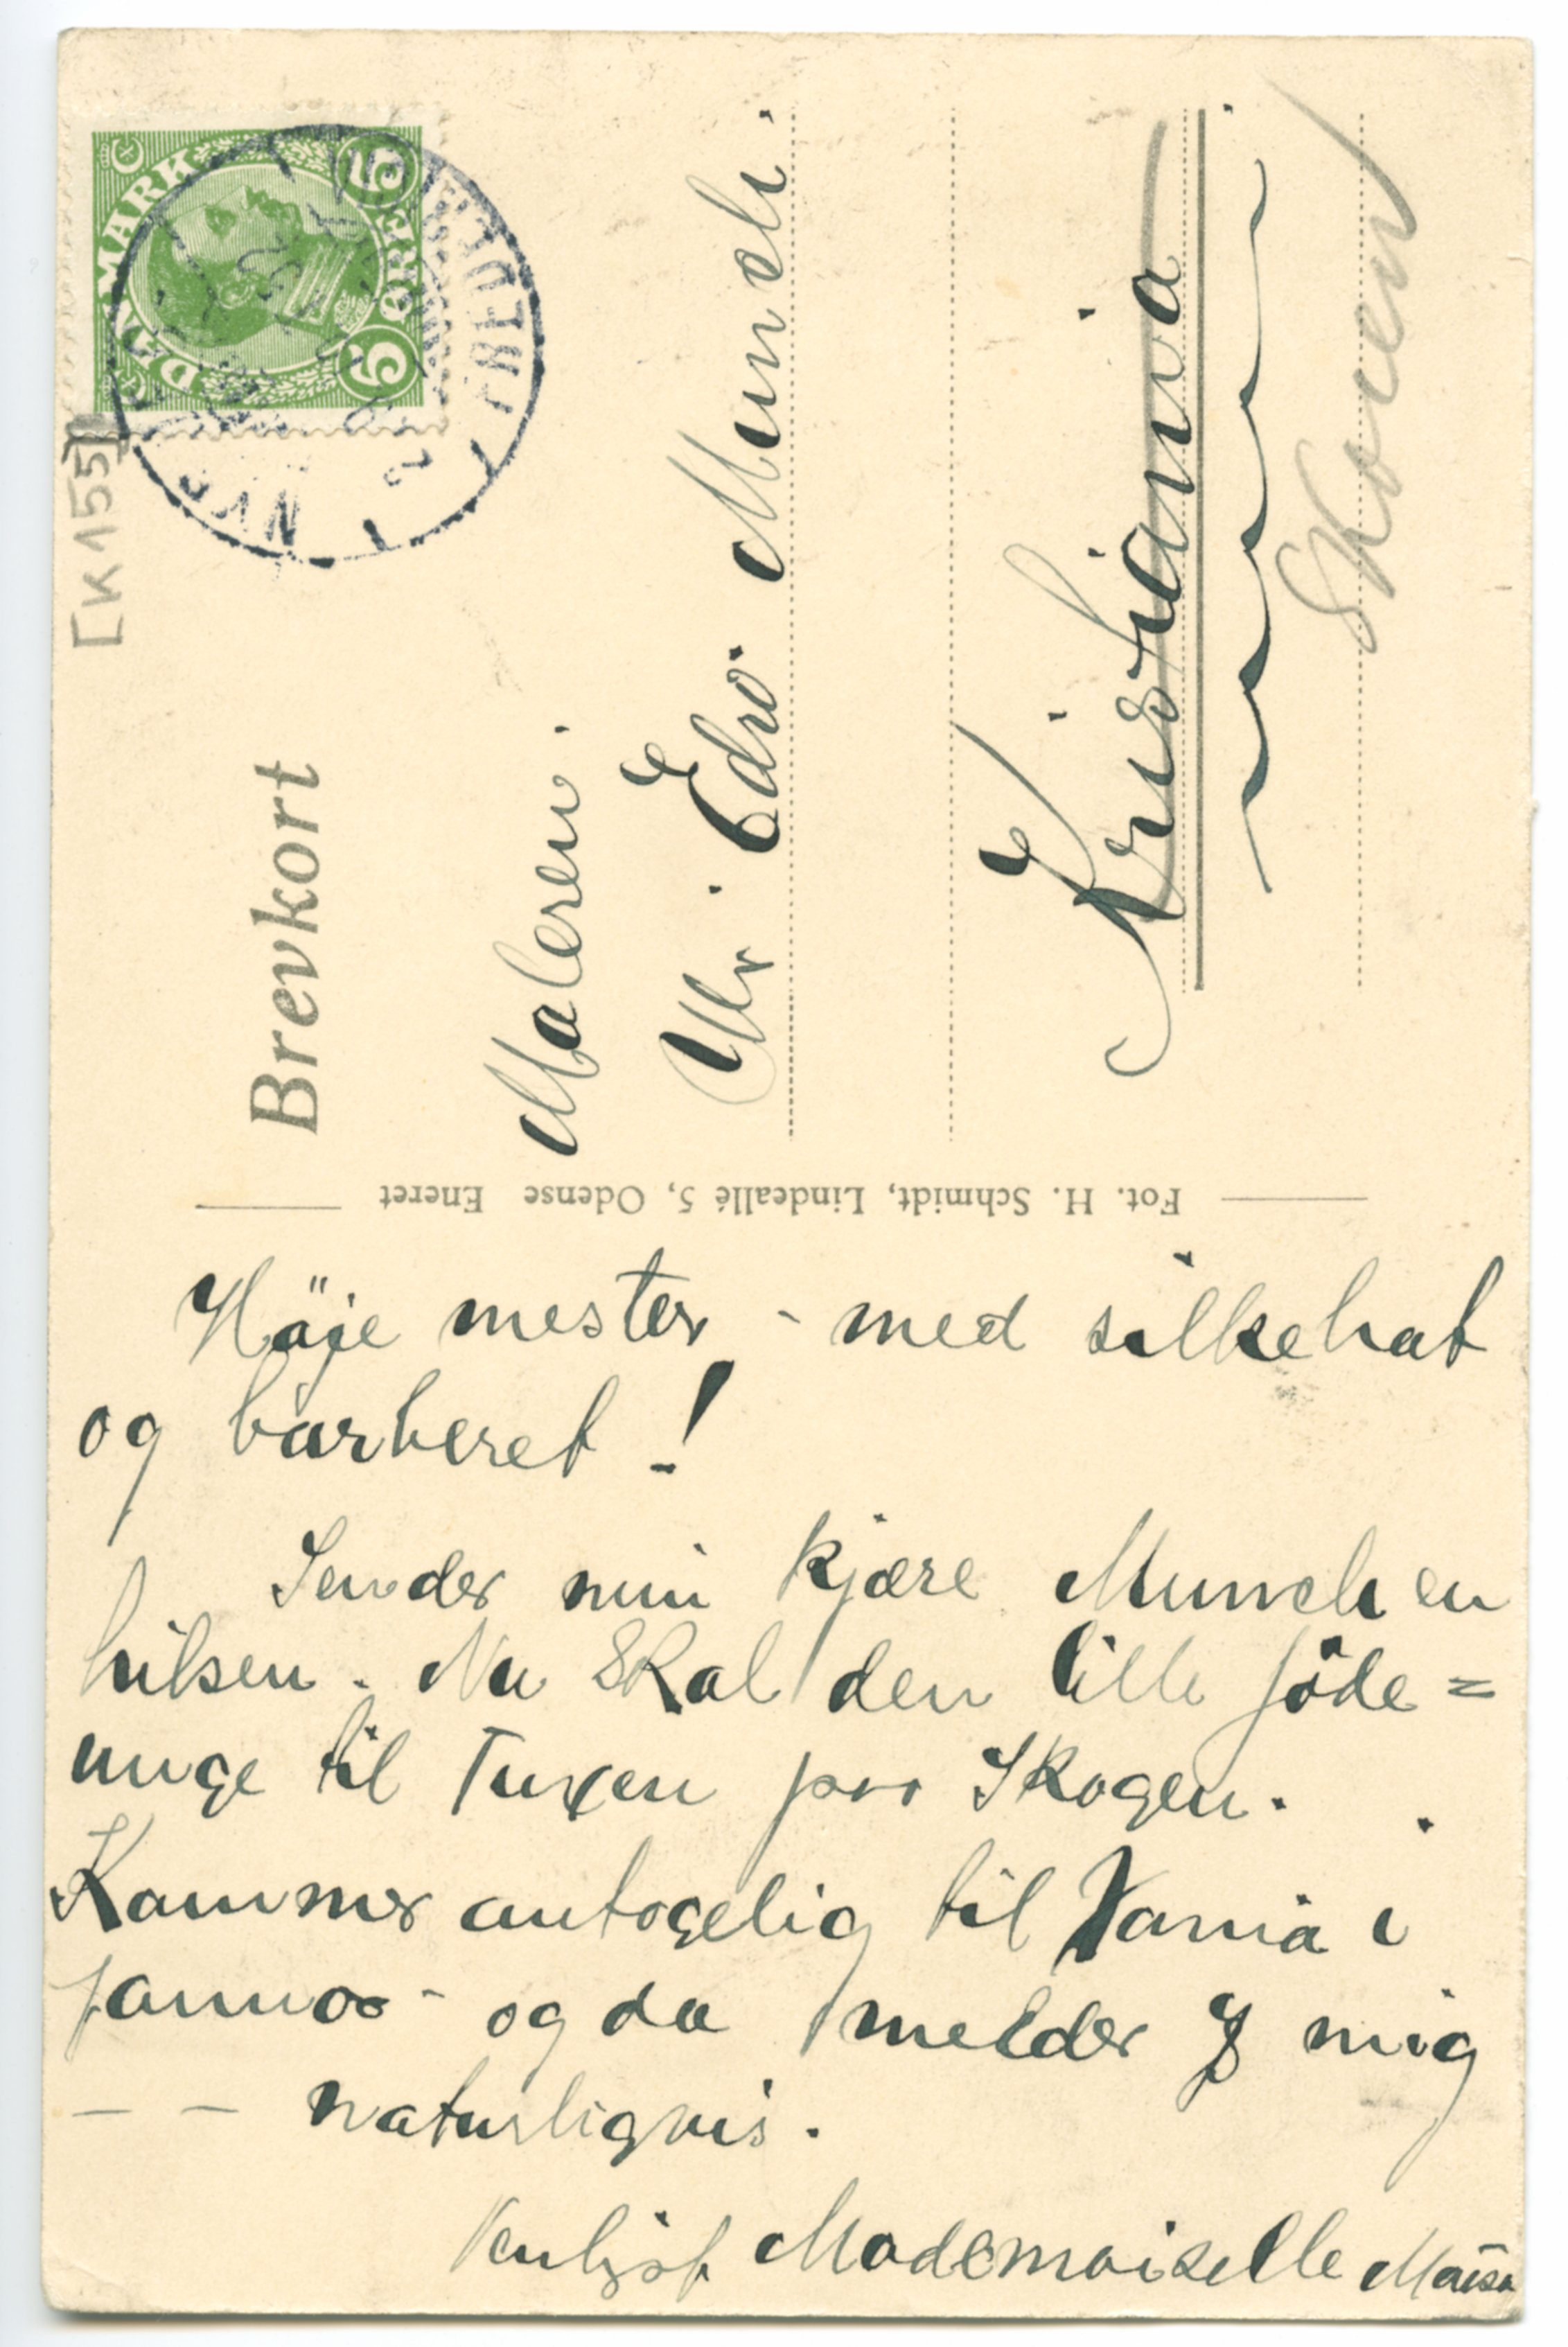 DANMARK
5 ØRE 5
[K 155]
Brevkort
Maleren.
Hr. Edv. Munch.
Kristiania
Skøien
Fot. H. Schmidt, Lindeallé 5, Odense Eneret
Høje mester - med silkehat
og barberet!
Sender min kjære Munch en
hilsen. Nu skal den lille jøde=
unge til Tuxen paa Skagen.
Kommer antagelig til Xania i
januar - og da melder J mig
— — naturligvis.
Venligst Mademoiselle Maisa